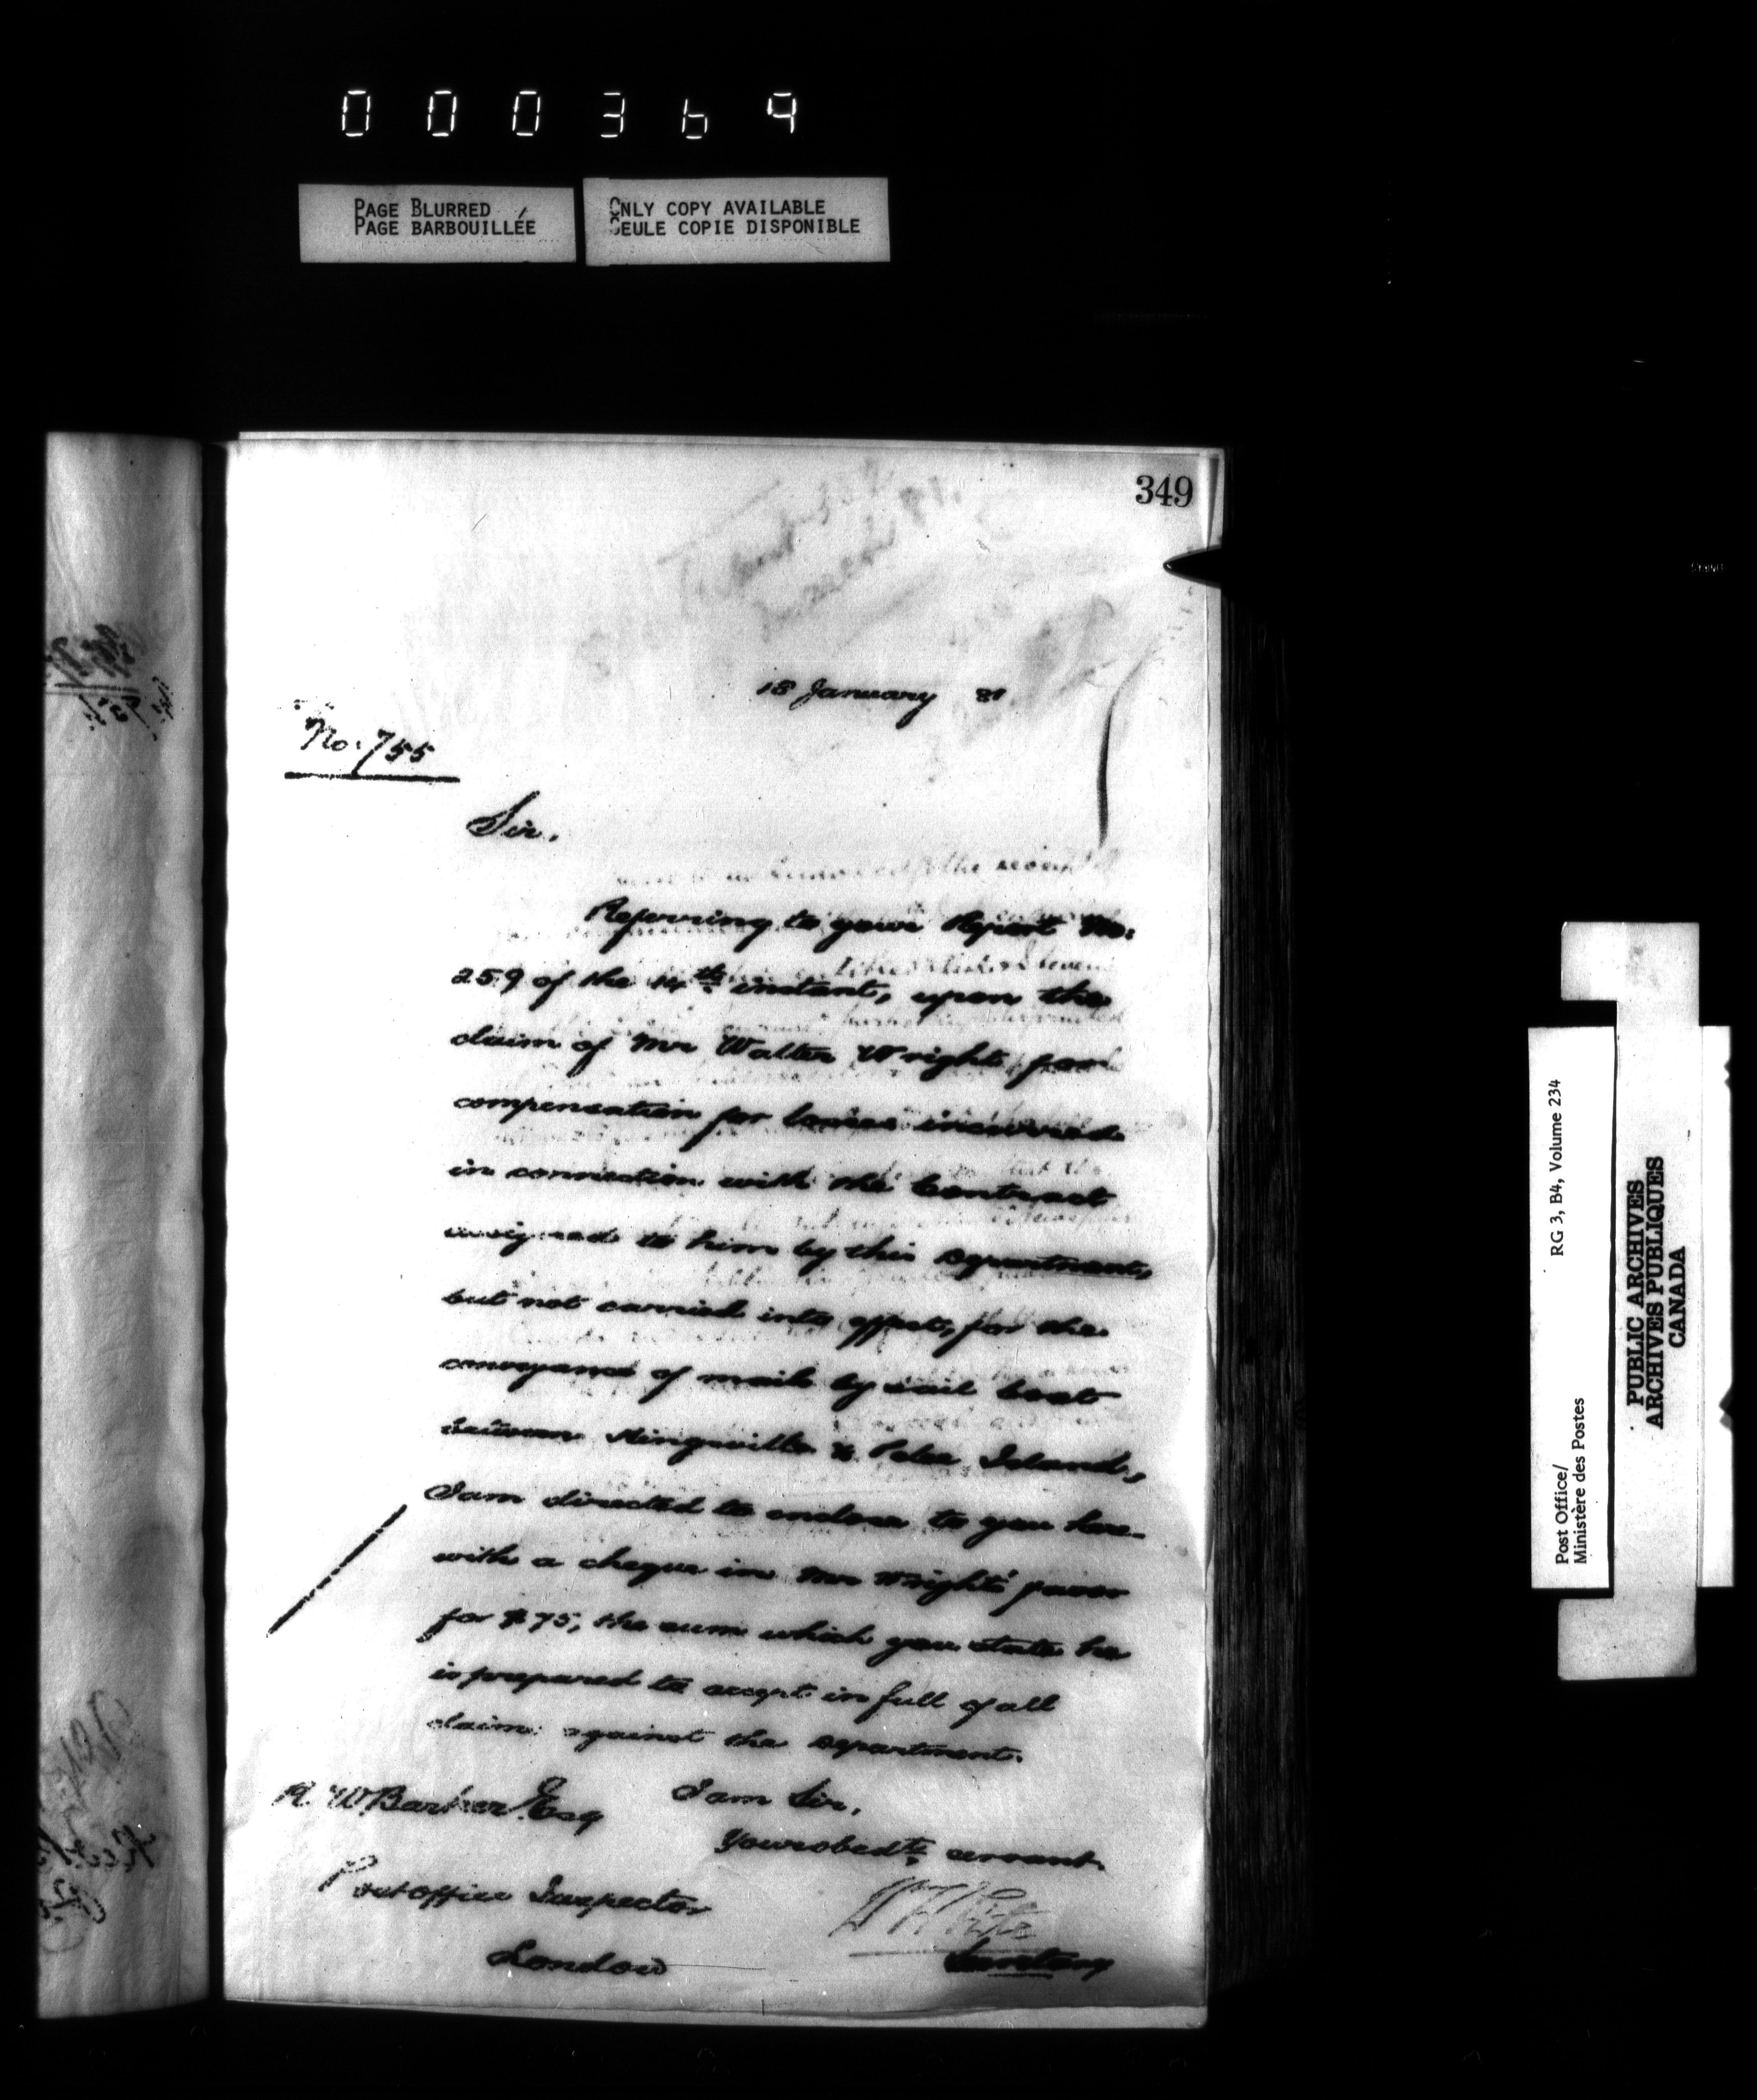 000369
PAGE BLURRED
PAGE BARBOUILLÉE
ONLY COPY AVAILABLE
SEULE COPIE DISPONIBLE
349
18 January 81
No. 755
Sir,
Referring to your Report No:
259 of the 14th instant, upon the
claim of Mr Walter Wright, for
compensation for losses incurred
in connection with the Contract
assigned to him by this Department,
but not carried into effect, for the
conveyance of mails by sail boat
between Kingsville & Pelee Island,
I am directed to enclose to you here-
with a cheque in Mr Wright's favor
for $75, the sum which you state he
is prepared to accept in full of all
claim against the Department.
I am Sir,
Your obedt. servant.
R. W. Barker Esq
Post Office Inspector
London
W White
Secretary
RG 3, B4, Volume 234
Post Office/
Ministère des Postes
PUBLIC ARCHIVES
ARCHIVES PUBLIQUES
CANADA